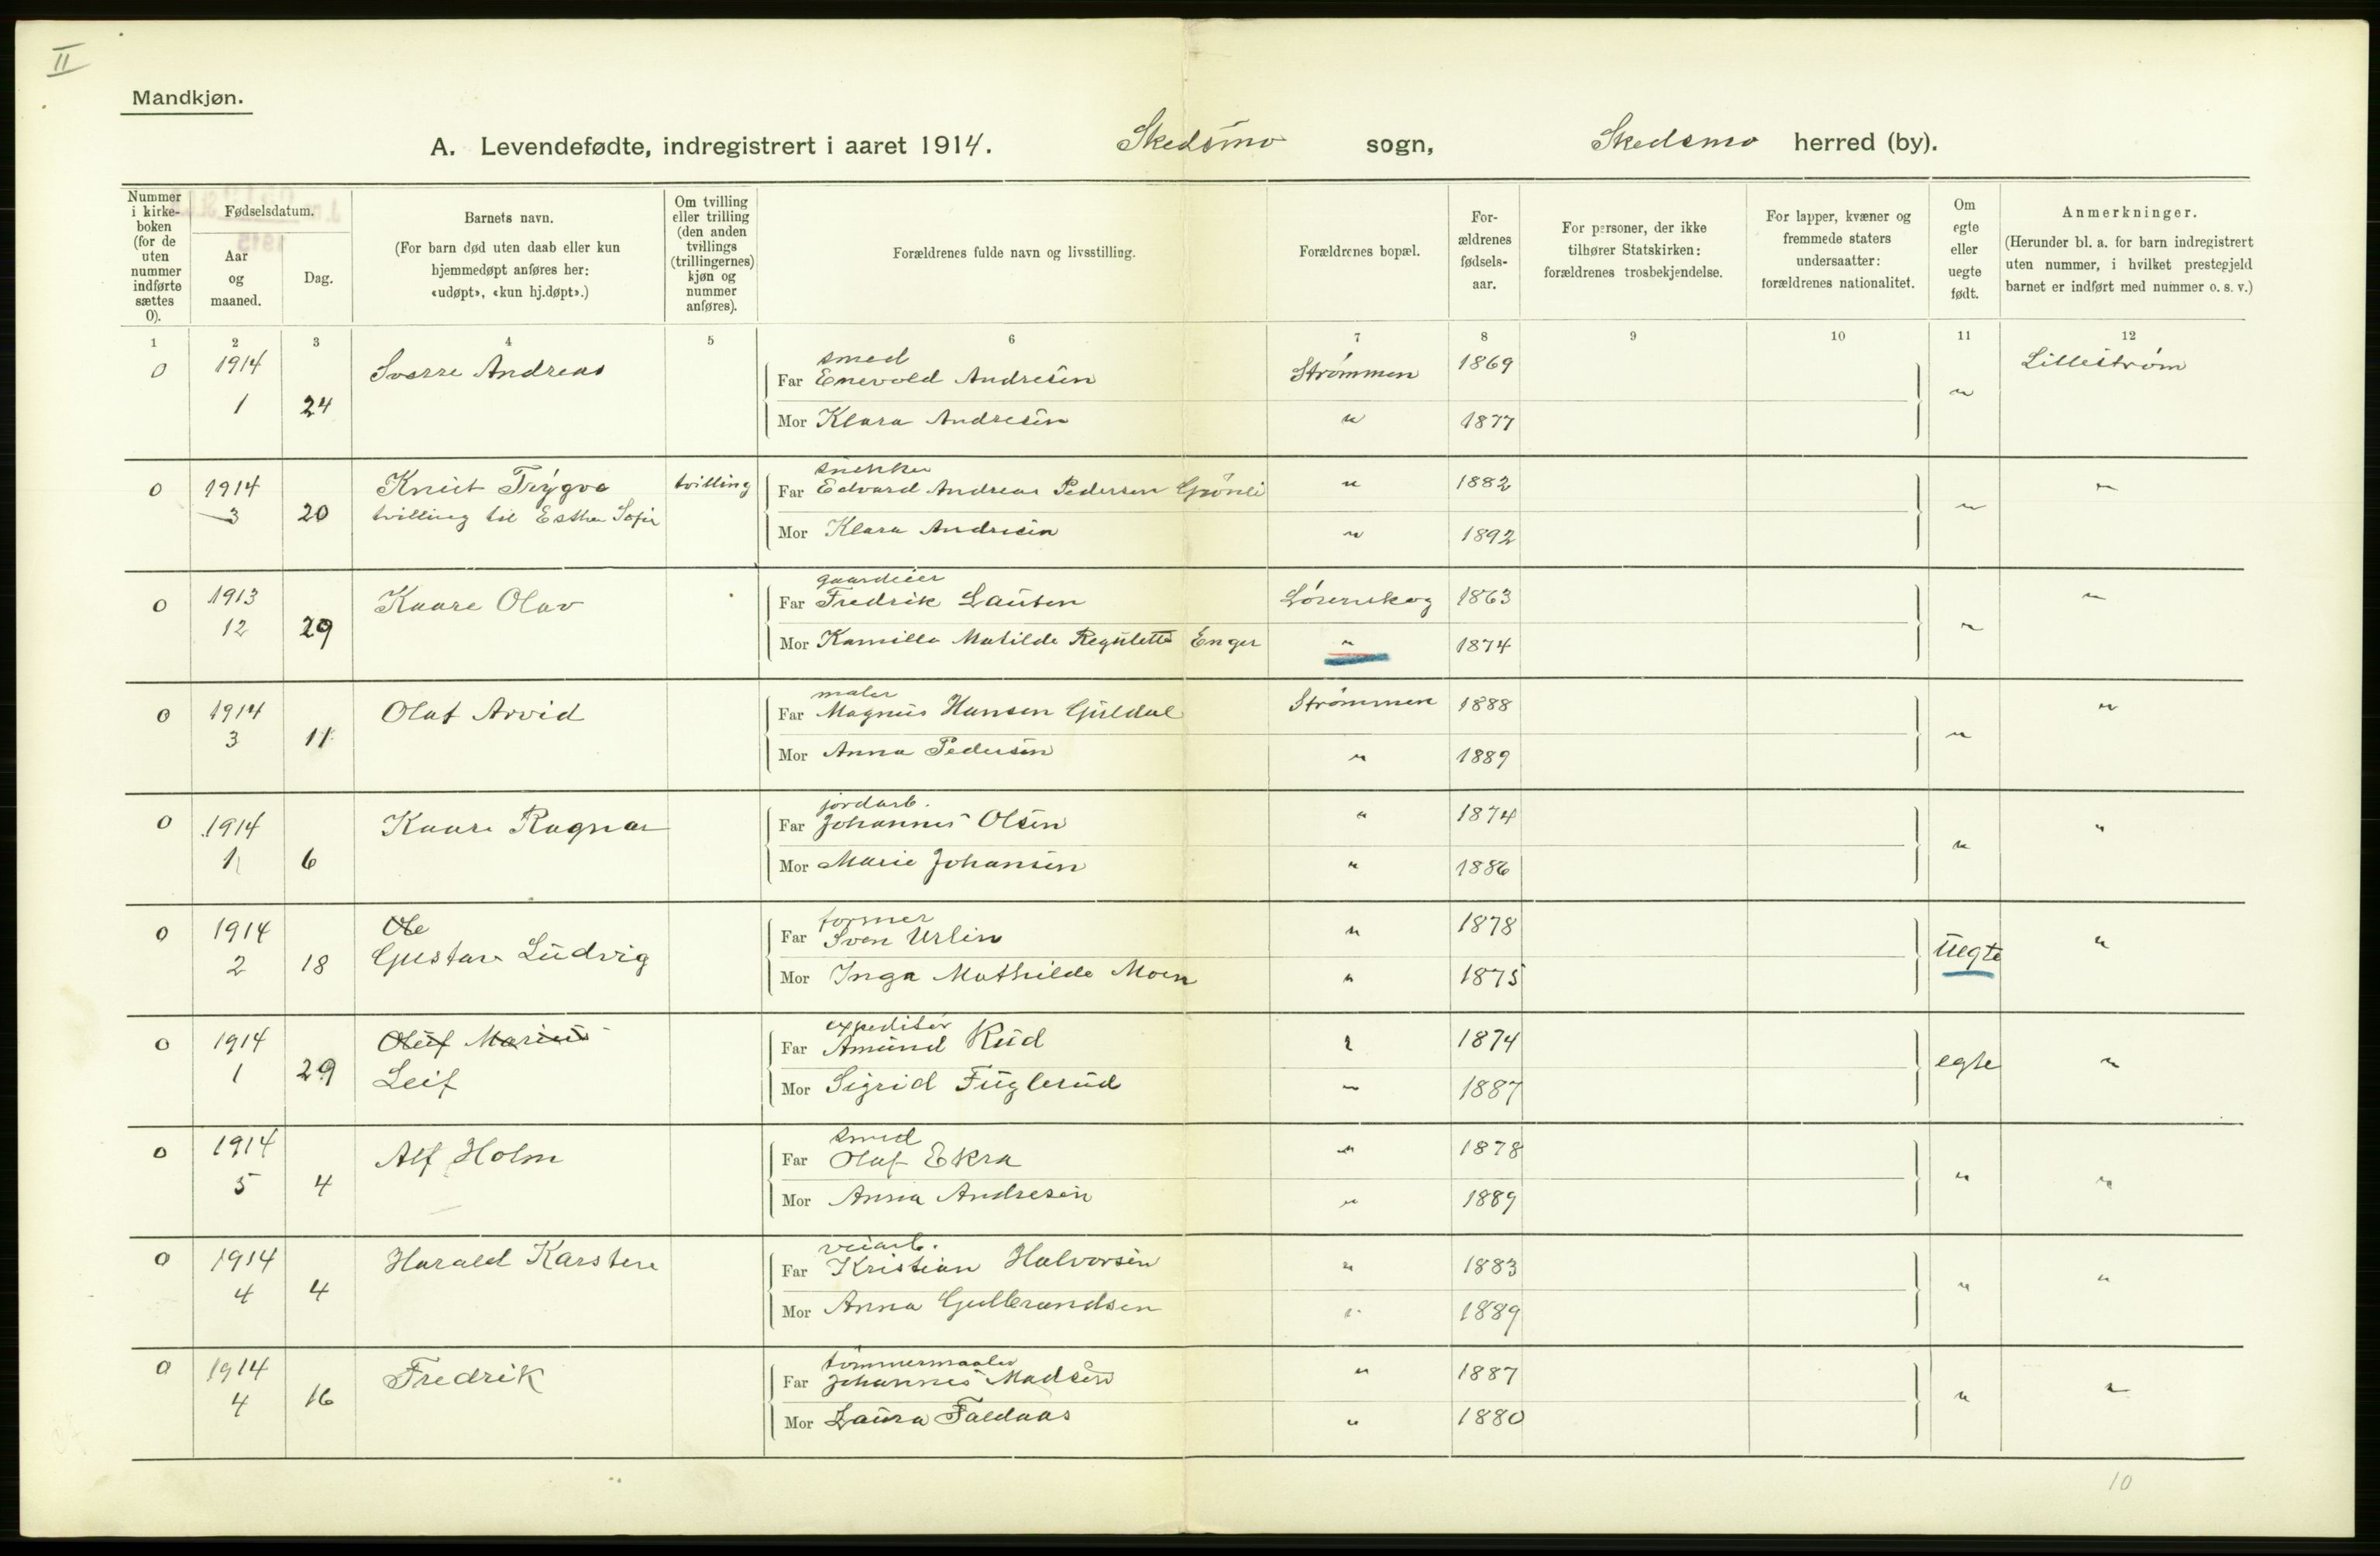 II
Mandkjøn.
A. Levendefødte, indregistrert i aaret 1914. Skedsmo sogn, Skedsmo herred (by).
Nummer i kirke-boken (for de uten nummer indførte sættes 0).
Fødselsdatum.
Aar og maaned.
Dag.
Barnets navn.
(For barn død uten daab eller kun hjemmedøpt anføres her: «udøpt», «kun hj.døpt».)
Om tvilling eller trilling (den anden tvillings (trillingernes) kjøn og nummer anføres).
Forældrenes fulde navn og livsstilling.
Forældrenes bopæl.
For-ældrenes fødsels-aar.
For personer, der ikke tilhører Statskirken: forældrenes trosbekjendelse.
For lapper, kvæner og fremmede staters undersaatter: forældrenes nationalitet.
Om egte eller uegte født.
Anmerkninger.
(Herunder bl. a. for barn indregistrert uten nummer, i hvilket prestegjeld barnet er indført med nummer o. s. v.)
1 2 3 4 5 6 7 8 9 10 11 12
0 1914 Sverre Andreas smed Lillestrøm
1 24 Far Enevold Andresen Strømmen 1869 "
Mor Klara Andresen " 1877
0 1914 Knut Trygve tvilling snekker "
3 20 tvilling til Esther Sofie Far Edvard Andreas Pedersen Grønli " 1882 "
Mor Klara Andresen " 1892
0 1913 Kaare Olav gaardeier "
12 29 Far Fredrik Lausen Lørenskog 1863 "
Mor Kamilla Matilde Regulette Enger " 1874
0 1914 Olaf Arvid maler "
3 11 Far Magnus Hansen Guldal Strømmen 1888 "
Mor Anna Pedersen " 1889
0 1914 Kaare Ragnar jordarb. "
1 6 Far Johannes Olsen " 1874 "
Mor Marie Johansen " 1886
0 1914 Ole former "
2 18 Gustav Ludvig Far Sven Urlin " 1878 uegte
Mor Inga Mathilde Moen " 1875
0 1914 Oluf Marius expeditør "
1 29 Leif Far Amund Rud " 1874 egte
Mor Sigrid Fuglerud " 1887
0 1914 Alf Holm smed "
5 4 Far Olaf Ekra " 1878 "
Mor Anna Andresen " 1889
0 1914 Harald Karsten veiarb. "
4 4 Far Kristian Halvorsen " 1883 "
Mor Anna Gulbrandsen " 1889
0 1914 Fredrik tømmermaaler "
4 16 Far Johannes Madsen " 1887 "
Mor Laura Faldaas " 1880
10